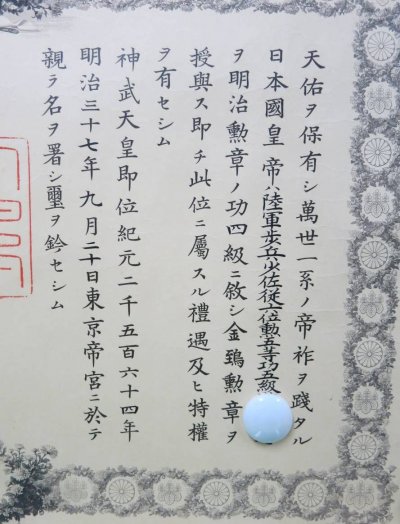 天佑ヲ保有シ萬世一系ノ帝祚ヲ踐タル
日本國皇帝ハ陸軍步兵少佐從六位勳五等功五級
ヲ明治勳章ノ功四級ニ敘シ金鵄勳章ヲ
授與ス即チ此位ニ屬スル禮遇及ヒ特權
ヲ有セシム
神武天皇即位紀元二千五百六十四年
明治三十七年九月二十日東京帝宮ニ於テ
親ラ名ヲ署シ璽ヲ鈐セシム